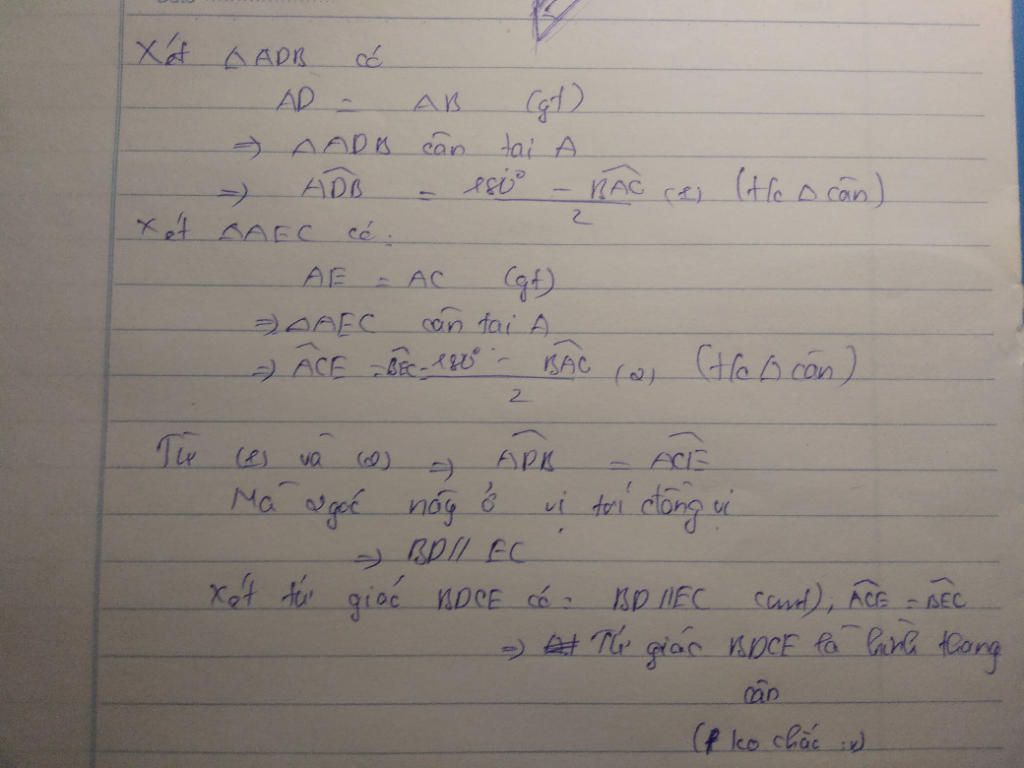 Xét △ADB có
AD = AB (gt)
⇒ △ADB cân tai A
⇒ ADB = 180° - BAC / 2 (1) (t/c △ cân)
Xét △AEC có:
AE = AC (gt)
⇒ △AEC cân tai A
⇒ ACE = BEC = 180° - BAC / 2 (2) (t/c △ cân)
Từ (1) và (2) ⇒ ADB = ACE
Mà 2 góc này ở vị trí đồng vị
⇒ BD // EC
Xét tứ giác BDCE có: BD // EC (cmt), ACE = BEC
⇒ Tứ giác BDCE là hình thang
cân
( ko chắc :v)